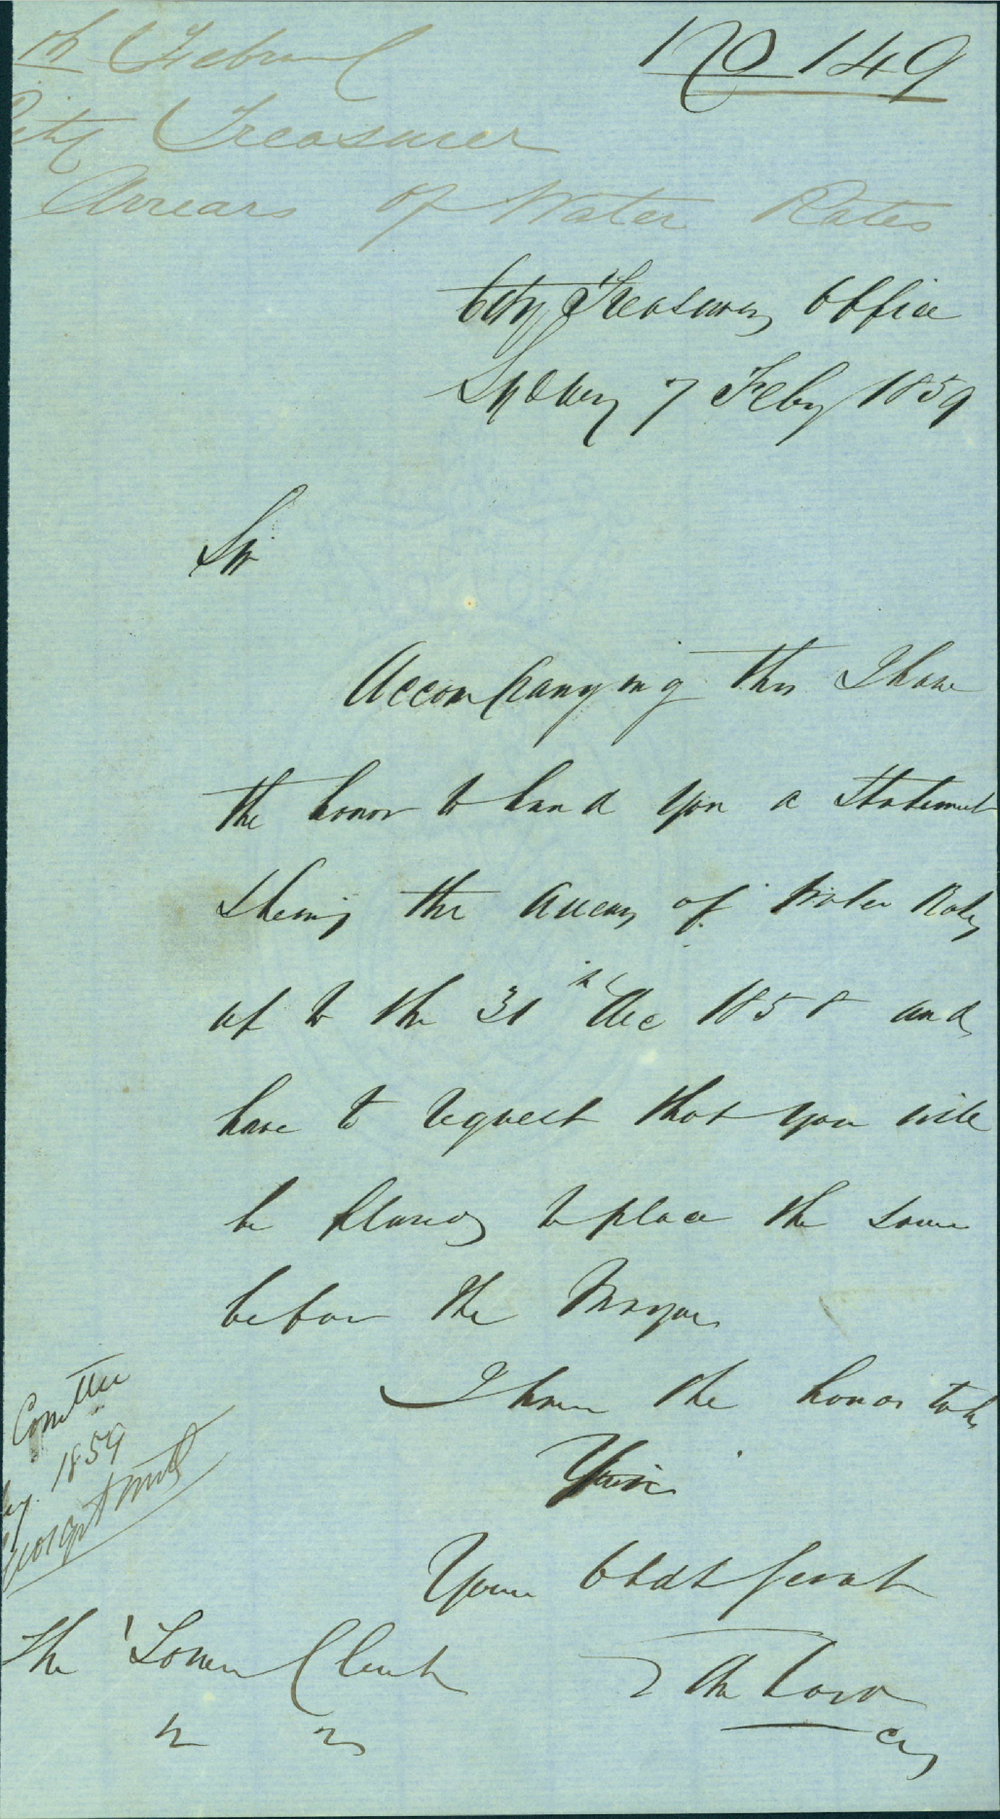 No 149
th February
City Treasurer
Arrears of Water Rates
City Treasury Office
Sydney 7 Feby 1859
Sir
Accompanying this I have
the honor to hand you a Statement
shewing the Arrears of Water Rates
up to the 31st Dec 1858 and
have to request that you will
be pleased to place the same
before the Mayor
I have the honor to be
Your Obdt Servt
Comttee
1859
George Smith
The Town Clerk